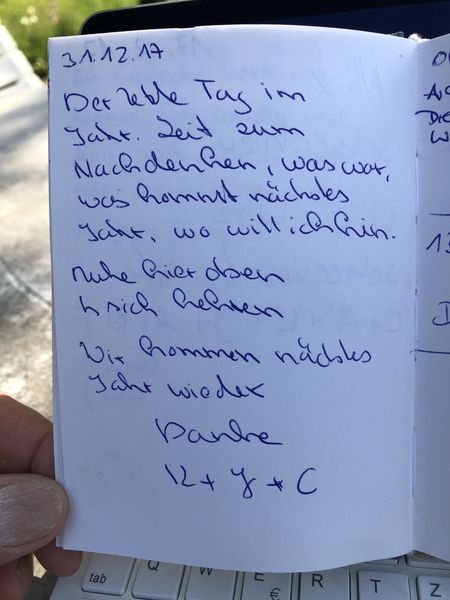 31.12.17
Der letzte Tag im
Jahr. Zeit zum
Nachdenken, was war,
was kommt nächstes
Jahr, wo will ich hin.
Ruhe hier oben
In sich kehren
Wir kommen nächstes
Jahr wieder
Danke
+ + C
Die
13
tab Q W E € R T Z